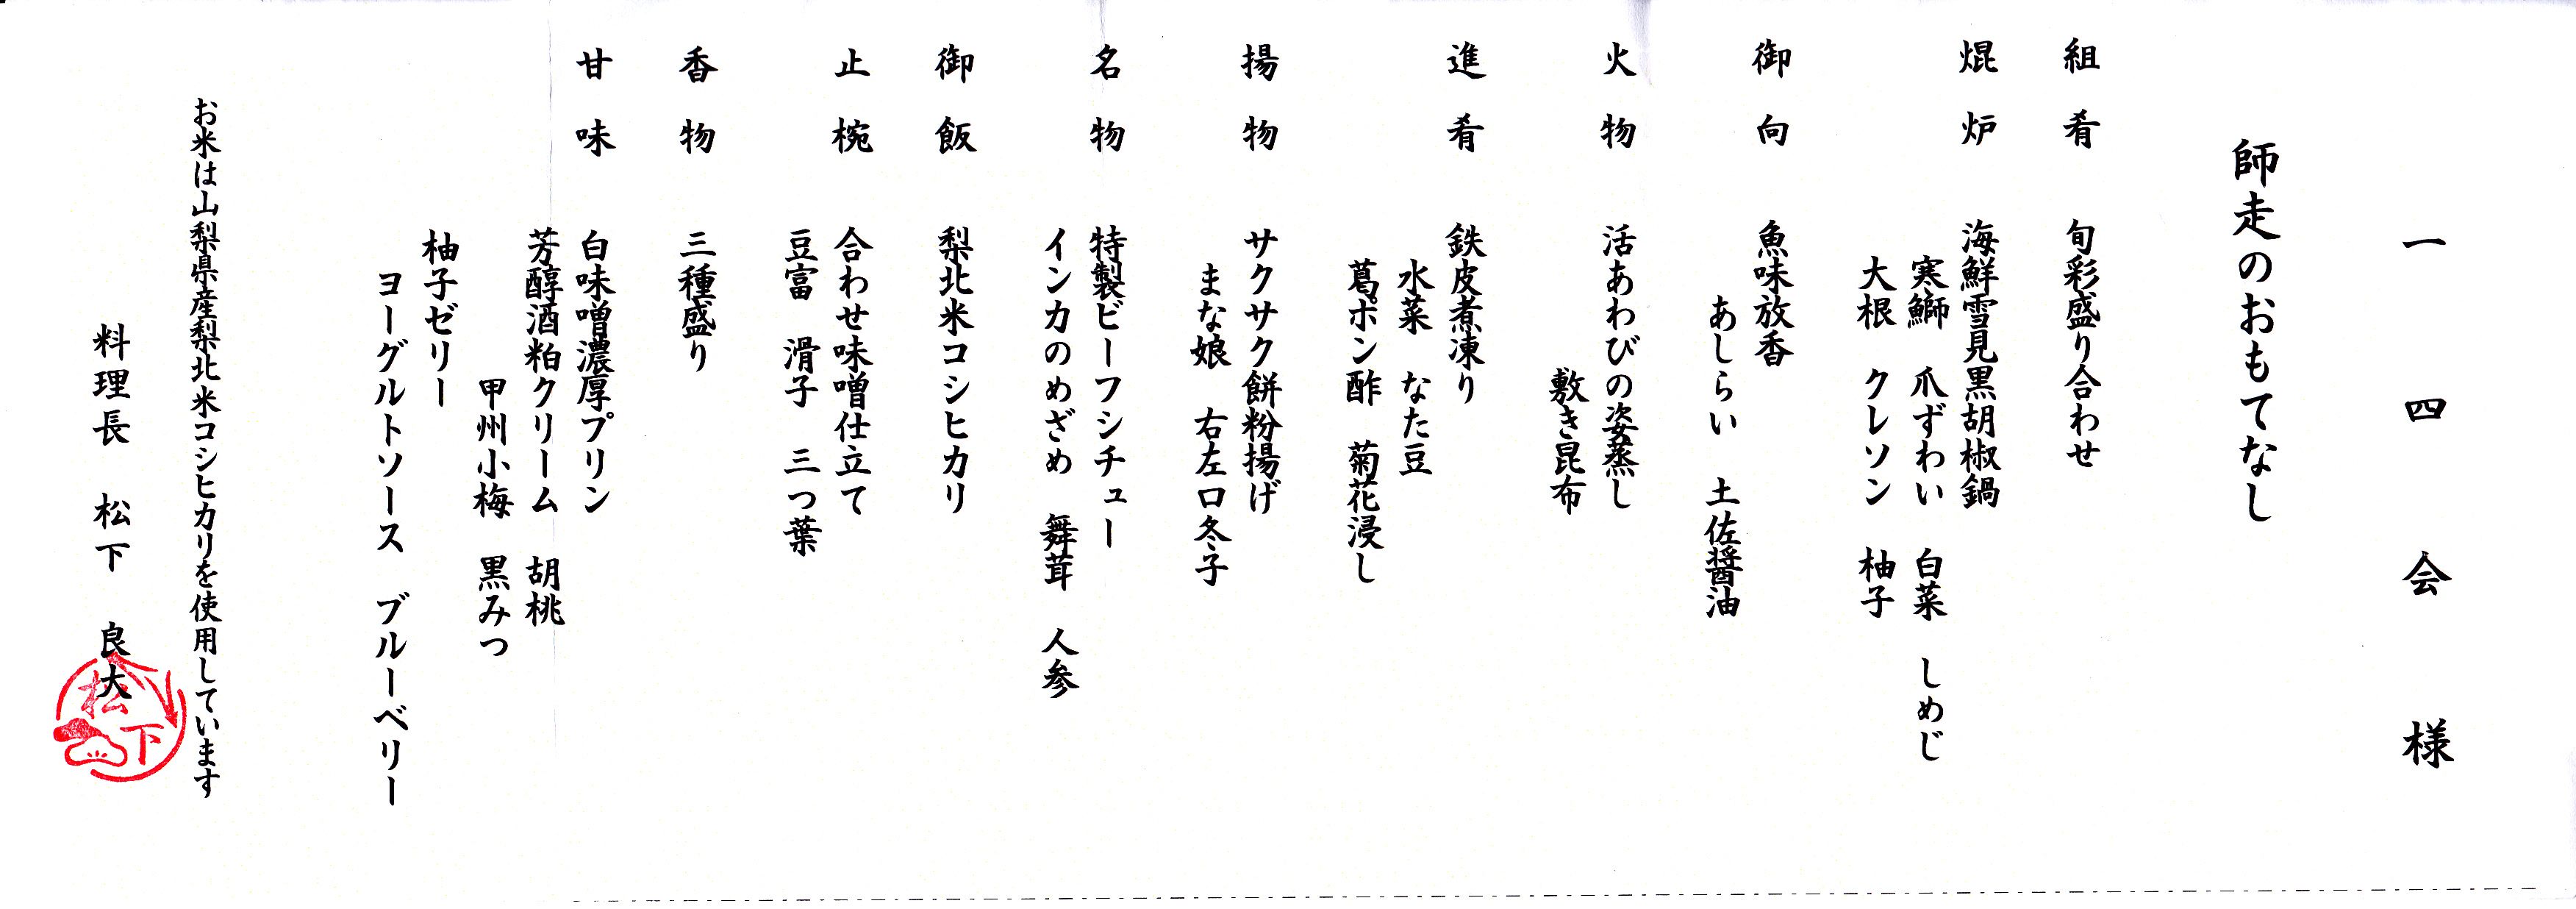 一四会様
師走のおもてなし
組肴 旬彩盛り合わせ
焜炉 海鮮雪見黒胡椒鍋
寒鰤 爪ずわい 白菜 しめじ
大根 クレソン 柚子
御向 魚味放香
あしらい 土佐醤油
火物 活あわびの姿蒸し
敷き昆布
進肴 鉄皮煮凍り
水菜 なた豆
葛ポン酢 菊花浸し
揚物 サクサク餅粉揚げ
まな娘 右左口冬子
名物 特製ビーフシチュー
インカのめざめ 舞茸 人参
御飯 梨北米コシヒカリ
止椀 合わせ味噌仕立て
豆富 滑子 三つ葉
香物 三種盛り
甘味 白味噌濃厚プリン
芳醇酒粕クリーム 胡桃
甲州小梅 黒みつ
柚子ゼリー
ヨーグルトソース ブルーベリー
お米は山梨県産梨北米コシヒカリを使用しています
料理長 松下 良大
松下